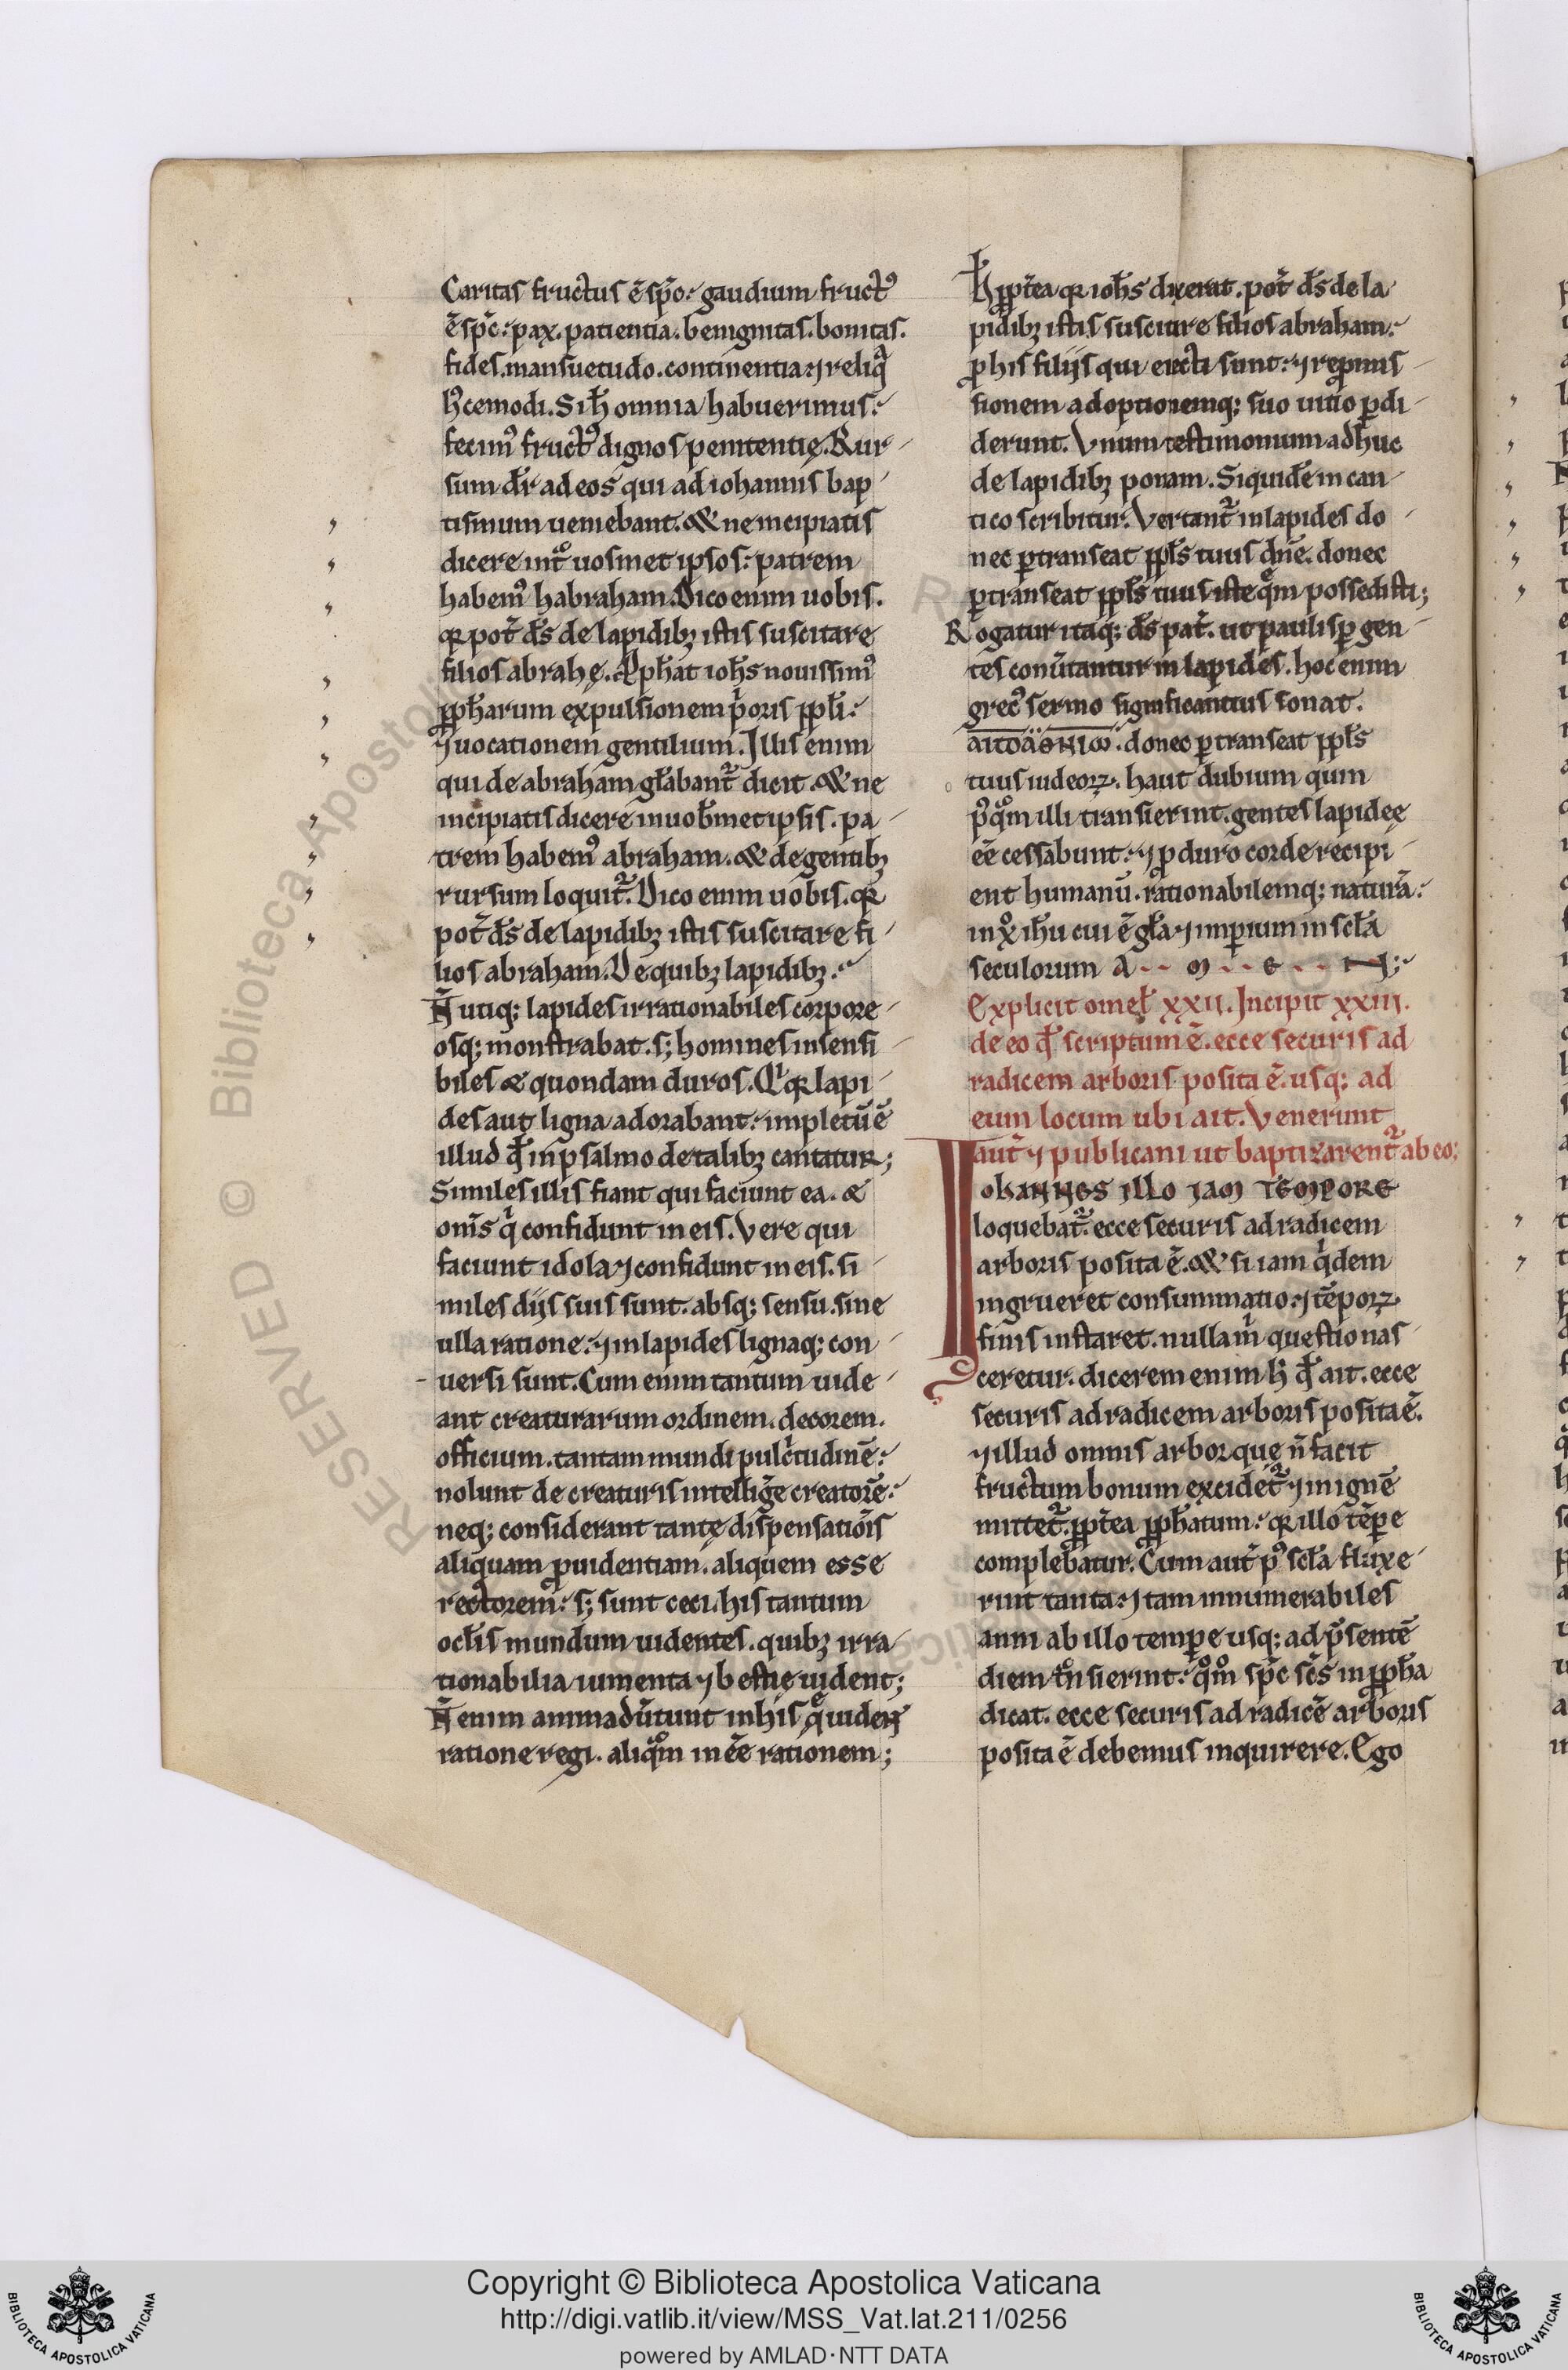 Caritas fructus ē sp̄c. gaudium fruct᷒
ē sp̄c. pax. patientia. benignitas. bonitas.
fides. mansuetudo. continentia ⁊ reliq̄
h᷒cemodi. Si h̄ omnia habuerimus.
fecim᷒ fruct᷒ dignos penitentię. Rur
sum dr̄ ad eos qui ad iohannis bap
tismum ueniebant. & ne incipiatis
dicere int̄ uosmet ipsos. patrem
habem᷒ habraham. Dico enim uobis.
qꝛ pot̄ d̄s de lapidibꝫ istis suscitare
filios abrahę. Ꝓphat ioh̄s nouissim᷒
ꝓph̄arum expulsionem p̄oris ppl̄i.
⁊ uocationem gentilium. Illis enim
qui de abraham gl̄abant᷑ dicit. & ne
incipiatis dicere in uob̄met ipsis. pa
trem habem᷒ abraham. & de gentibꝫ
rursum loquit᷑. Dico enim uobis. qꝛ
pot̄ d̄s de lapidibꝫ istis suscitare fi
lios abraham. De quibꝫ lapidibꝫ.
N̄ utiqꝫ lapides irrationabiles corpore
osqꝫ monstrabat. sꝫ homines insensi
biles & quondam duros. Qⁱ qꝛ lapi
des aut ligna adorabant. impletū ē
illud qd̄ in psalmo de talibꝫ cantatur;
Similes illis fiant qui faciunt ea. &
om̄s qⁱ confidunt in eis. Vere qui
faciunt idola ⁊ confidunt in eis. si
miles dijs suis sunt. absqꝫ sensu. sine
ulla ratione. ⁊ in lapides lignaqꝫ con
uersi sunt. Cum enim tantum uide
ant creaturarum ordinem. decorem.
officium. tantam mundi pulc̄tudinē.
nolunt de creaturis intelliḡe creatorē.
neqꝫ considerant tantę dispensatiōis
aliquam ꝓuidentiam. aliquem esse
rectorem. sꝫ sunt ceci. his tantum
ocl̄is mundum uidentes. quibꝫ irra
tionabilia iumenta ⁊ bestię uident;
N̄ enim animadūtunt in his q̄ uiden̄t
ratione regi. aliqᵒm inēē rationem;
H̄ ꝓpt̄ea qꝛ ioh̄s dixerat. pot̄ d̄s de la
pidibꝫ istis suscitare filios abraham.
ꝓ his filijs qui eiecti sunt. ⁊ reꝓmis
sionem adoptionemqꝫ suo uitio ꝑdi
derunt. Vnum testimonium adhuc
de lapidibꝫ ponam. Siquidē in can
tico scribitur. Vertant᷑ in lapides do
nec ꝑtranseat ppl̄s tuus dn̄e. donec
ꝑtranseat ppl̄s tuus iste q̄m possedisti;
Rogatur itaqꝫ d̄s pat̄. ut paulisꝑ gen
tes conūtantur in lapides. hoc enim
grec᷒ sermo significantius sonat.
donec ꝑtranseat ppl̄s
tuus iudeoꝝ. haut dubium quin
p᷒qᵒm illi transierint. gentes lapideę
ēē cessabunt. ⁊ ꝓ duro corde recipi
ent humanū. rationabilemqꝫ naturā.
in xᵒ ih̄u cui ē gl̄a ⁊ imꝑium in scl̄a
seculorum A . . m . . e . . n;
Explicit omel̄ xxii. Incipit xxiii.
de eo qd̄ scriptum ē. ecce securis ad
radicem arboris posita ē. usqꝫ ad
eum locum ubi ait. Venerunt
aut̄ ⁊ publicani ut baptizarent᷑ ab eo;
Iohannes illo iam tempore
loquebat᷑. ecce securis ad radicem
arboris posita ē. & si iam qⁱdem
ingrueret consummatio. ⁊ tēpoꝝ
finis instaret. nulla m̄ questio nas
ceretur. dicerem enim h̄ qd̄ ait. ecce
securis ad radicem arboris posita ē.
⁊ illud omnis arbor quę n̄ facit
fructum bonum excidet᷑ ⁊ in ignē
mittet᷑. ꝓpt̄ea ꝓph̄atum. qꝛ illo tēꝑe
complebatur. Cum aut̄ p᷒ scl̄a fluxe
rint tanta. ⁊ tam innumerabiles
anni ab illo temꝑe usqꝫ ad p̄sentē
diem tn̄sierint. qᵒmᵒ sp̄c sc̄s in ꝓph̄a
dicat. ecce securis ad radicē arboris
posita ē debemus inquirere. Ego
RESERVED © Biblioteca Apostolica
Copyright © Biblioteca Apostolica Vaticana
http://digi.vatlib.it/view/MSS_Vat.lat.211/0256
powered by AMLAD·NTT DATA
BIBLIOTECA APOSTOLICA VATICANA
BIBLIOTECA APOSTOLICA VATICANA